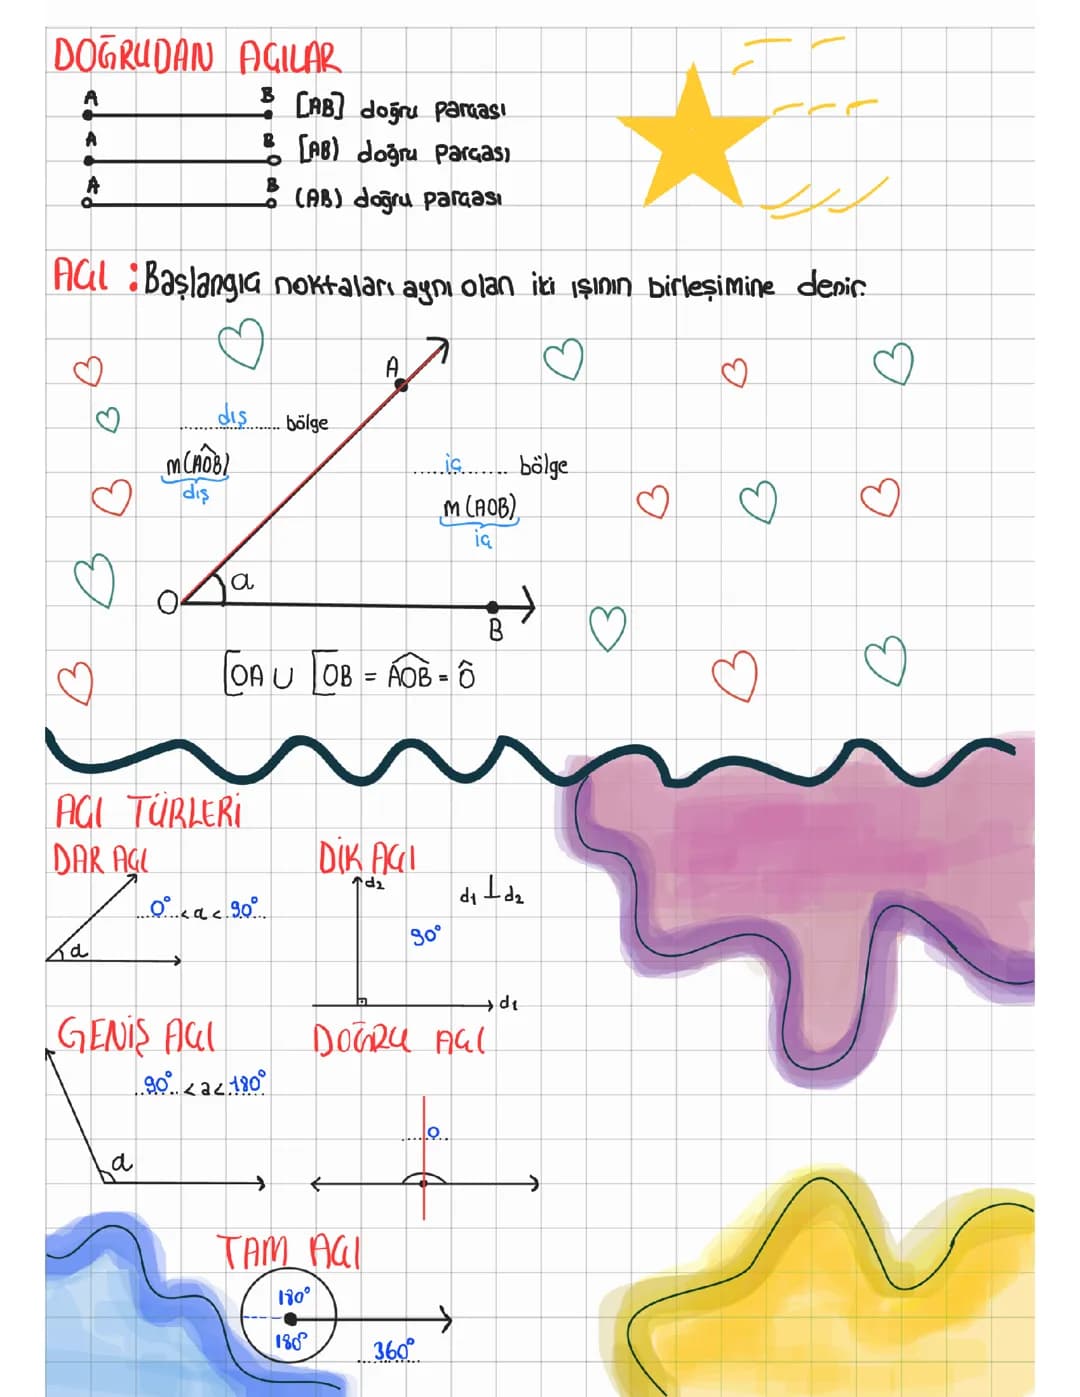 DOĞRUDAN AÇILAR
A B [AB] doğru parçası
A B [AB) doğru parçası
A B (AB) doğru parçası
AÇI : Başlangıç noktaları aynı olan iki ışının birleşimine denir.
A
dış bölge
m(AÔB)
dış
iç bölge
m(AOB)
iç
O a
B
[OA ∪ [OB = AÔB = Ô
AÇI TÜRLERİ
DAR AÇI
0° < a < 90°
a
DİK AÇI
d2
d1 ⊥ d2
90°
d1
GENİŞ AÇI
90° < a < 180°
a
DOĞRU AÇI
0
TAM AÇI
180°
180°
360°